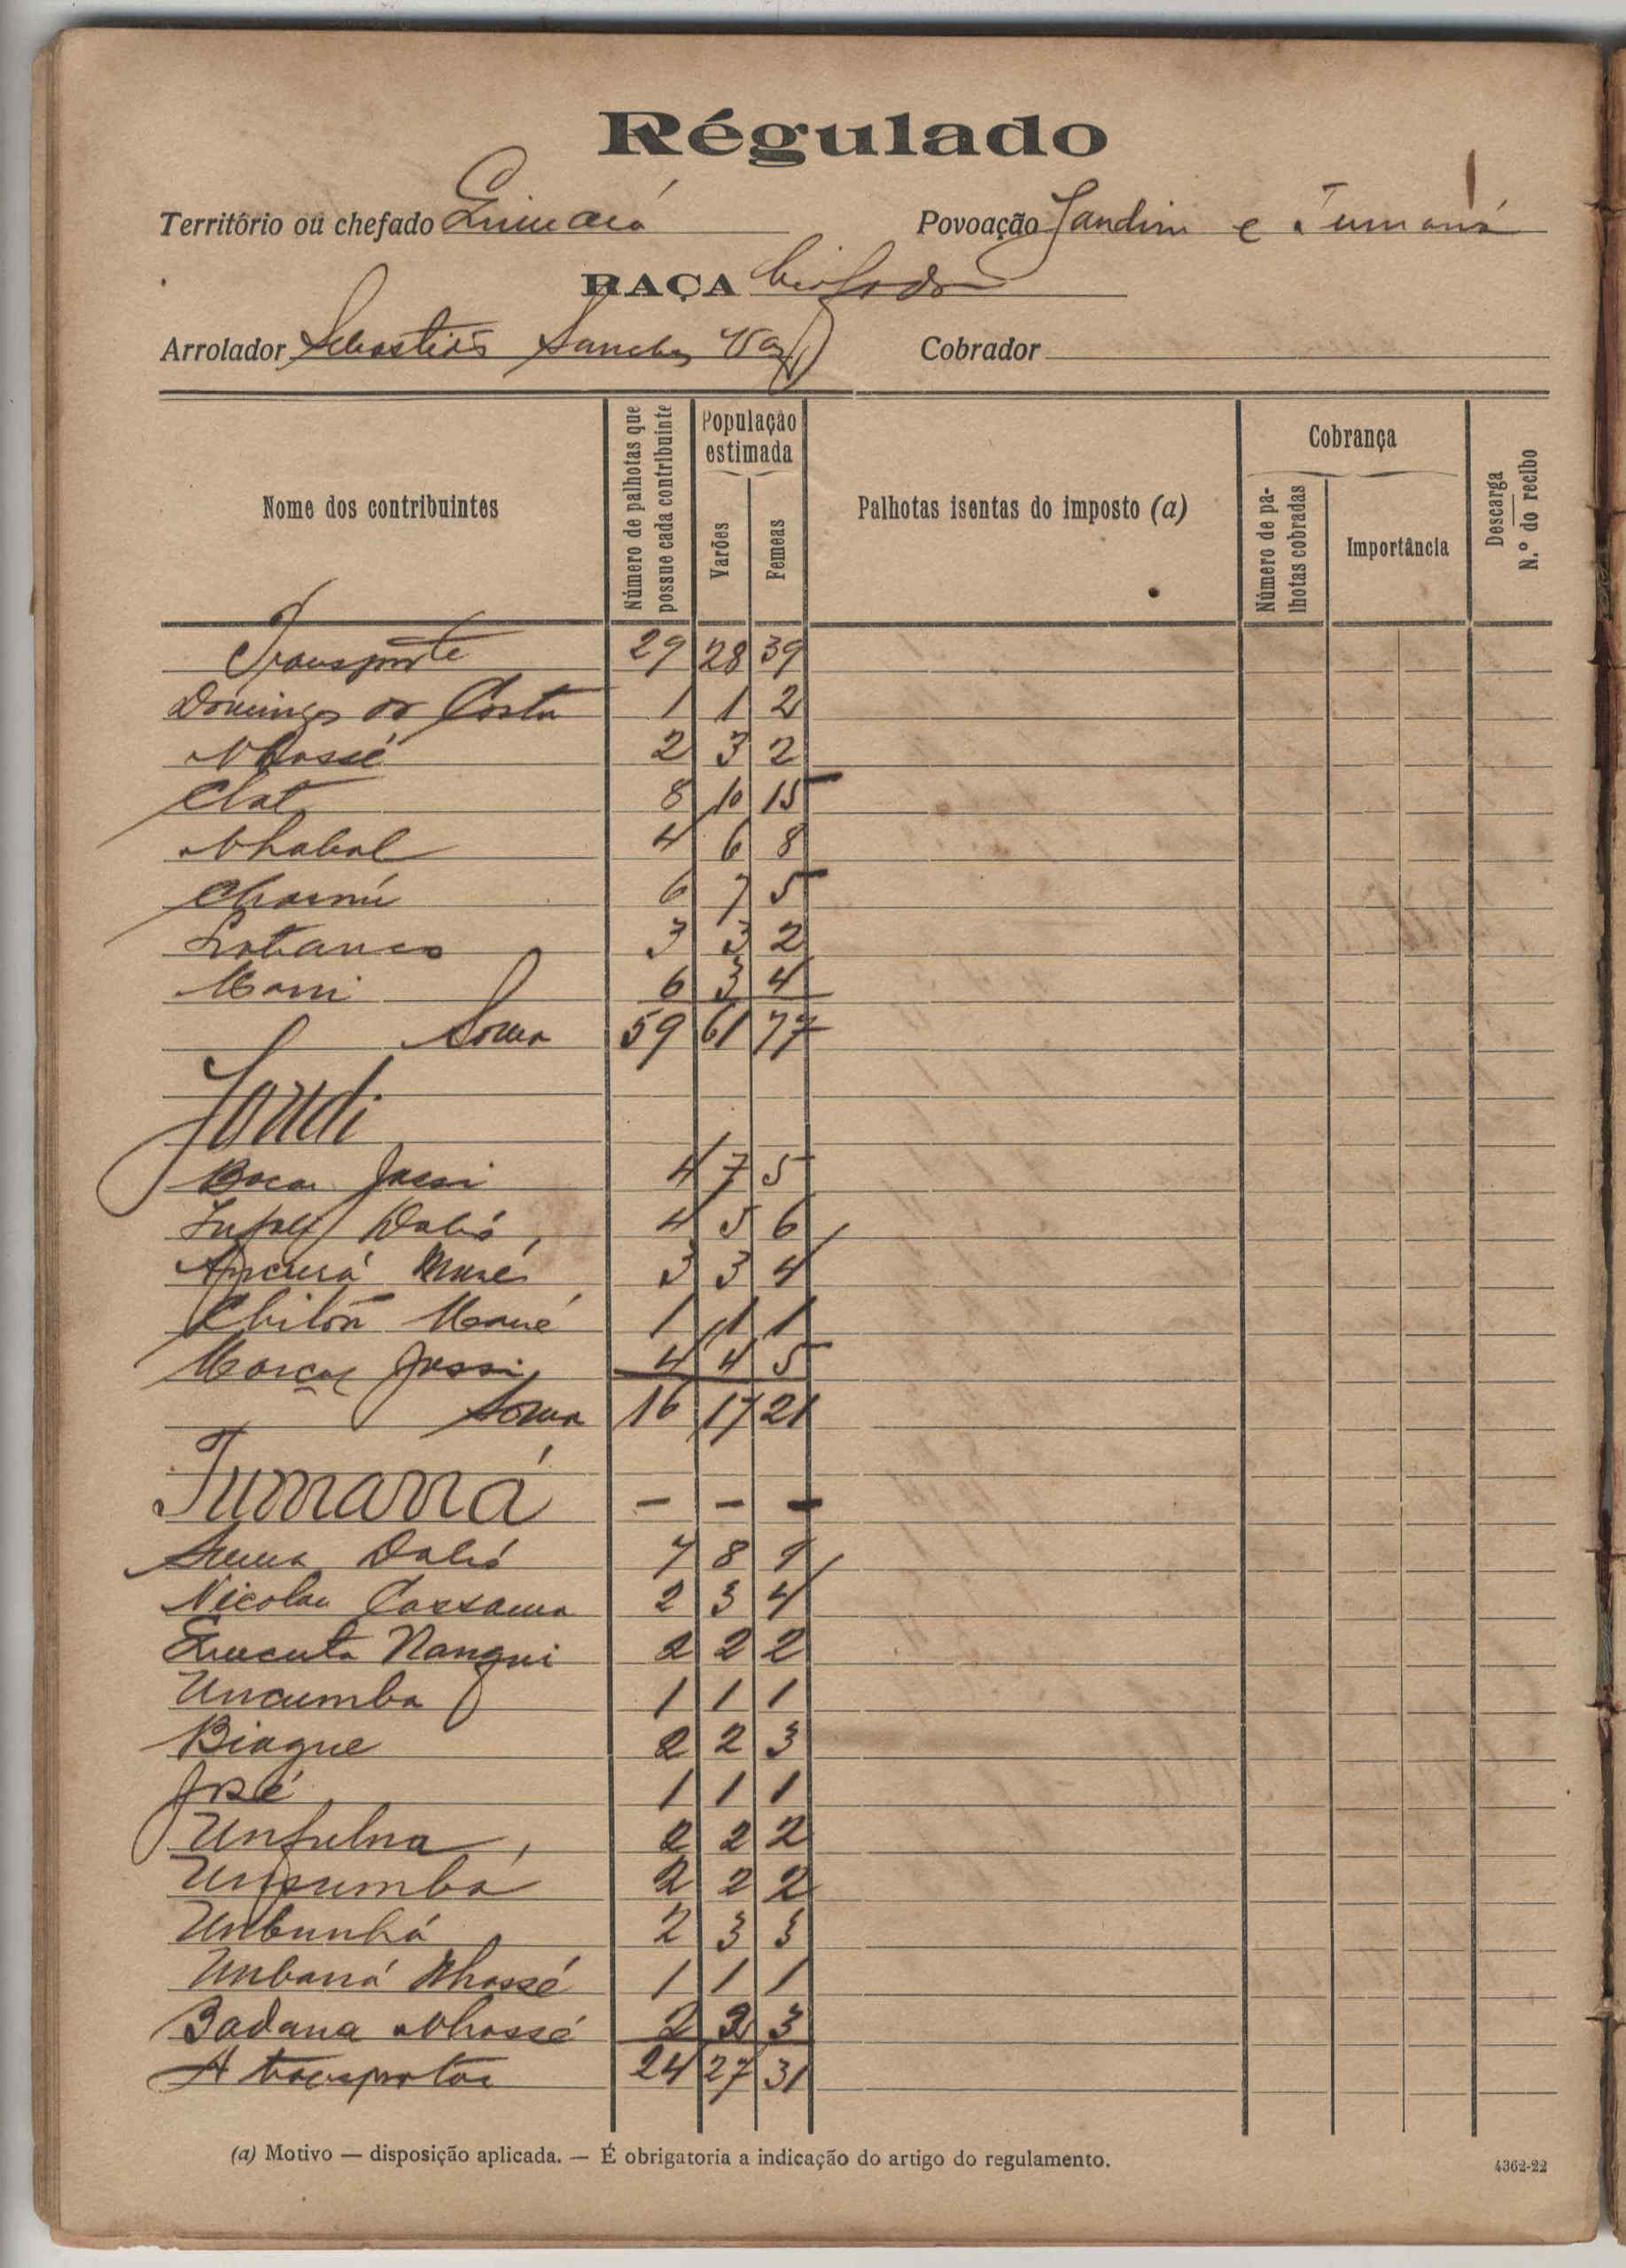 Régulado
Território ou chefado
Povoação Jandim e Tumaná
RAÇA
Arrolador Sebastião Sanches Vaz Cobrador
Nome dos contribuintes
Número de palhotas que possue cada contribuinte
População estimada
Varões
Femeas
Palhotas isentas do imposto (a)
Cobrança
Número de palhotas cobradas
Importância
Descarga
N.º do recibo
Transporte 29 28 39
Domingos da Costa 1 1 2
Nhassé 2 3 2
8 10 15
Nhabal 4 6 8
6 7 5
3 3 2
6 3 4
Soma 59 61 77
Jandi
Bacar Jassi 4 7 5
Dabó 4 5 6
Mané 3 3 4
Mané 1 1 1
Jassi 4 4 5
Soma 16 17 21
Tumaná - - -
Dabó 7 8 9
Nicolau Cassama 2 3 4
Nanqui 2 2 2
Uncumba 1 1 1
Biague 2 2 3
José 1 1 1
2 2 2
2 2 2
Unbunhá 2 3 3
Unbaná Nhassé 1 1 1
Badana Nhassé 2 2 3
A transportar 24 27 31
(a) Motivo — disposição aplicada. — É obrigatoria a indicação do artigo do regulamento.
4362-22